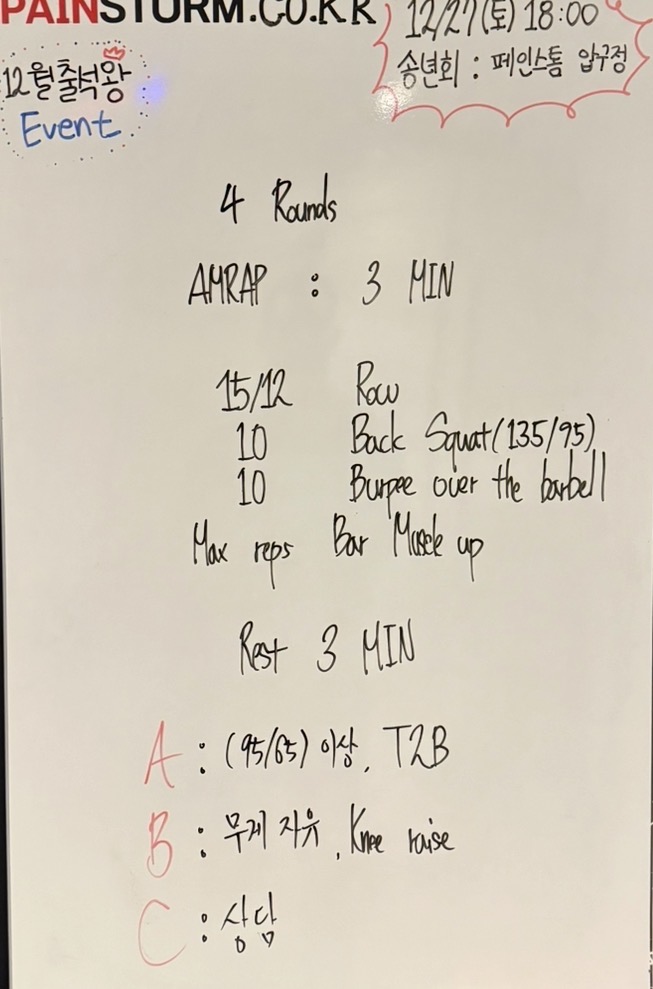 PAINSTORM.CO.KR
12/27(토) 18:00
송년회 : 페인스톰 압구정
12월 출석왕
Event
4 Rounds
AMRAP : 3 MIN
15/12 Row
10 Back Squat(135/95)
10 Burpee over the barbell
Max reps Bar Muscle up
Rest 3 MIN
A : (95/65) 이상, T2B
B : 무게 자유, Knee raise
C : 상담